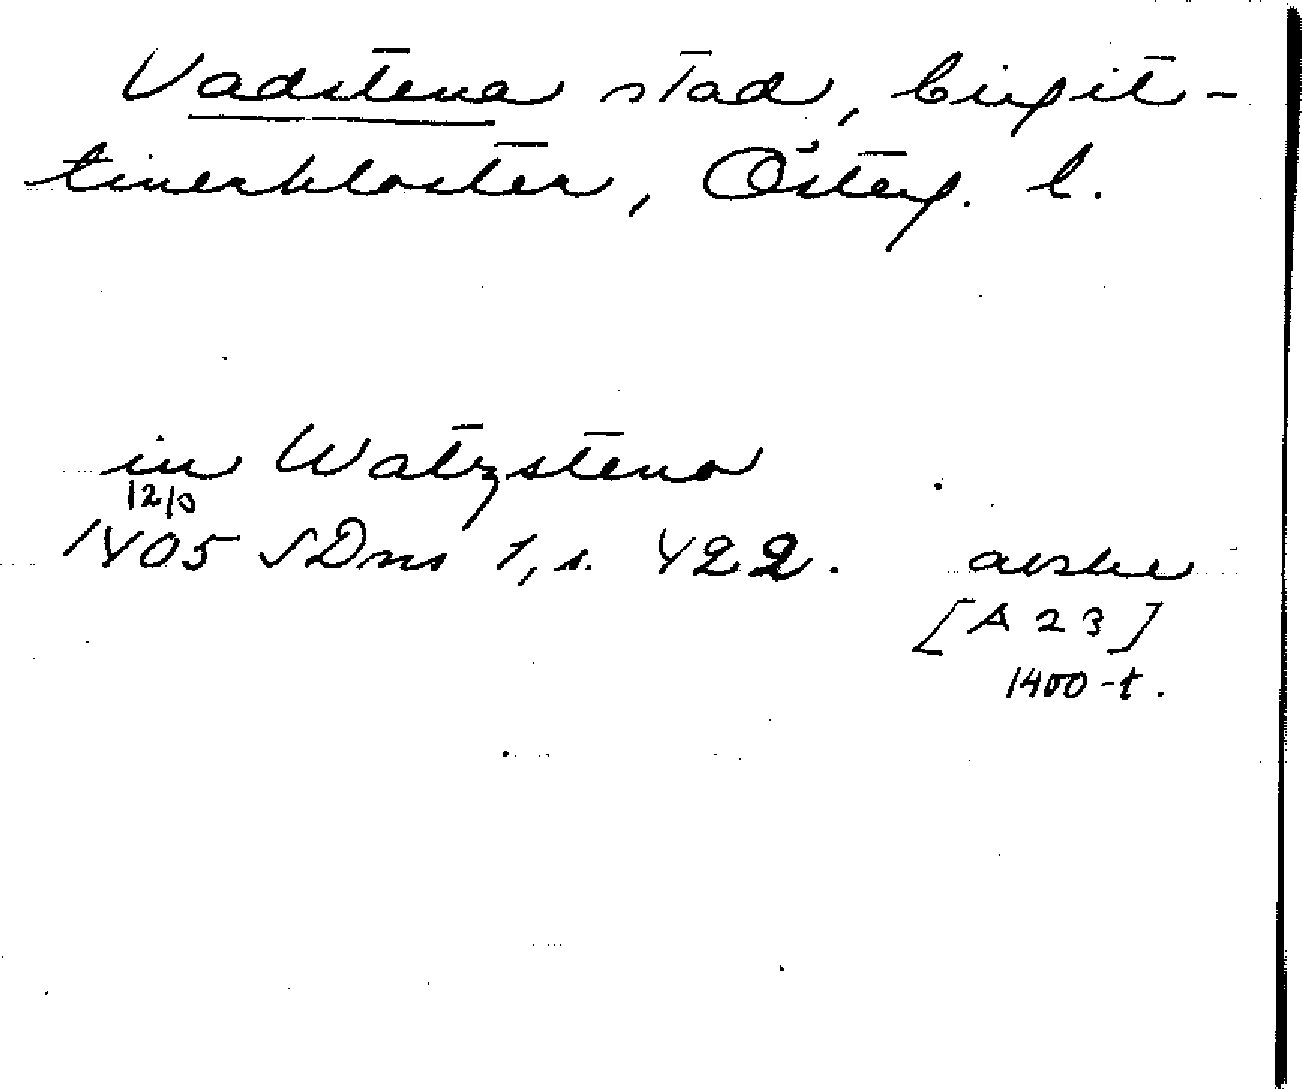 Vadstena stad, birgit-
tinerkloster, Österg. l.
in Watzstena
12/3
1405 SDns 1, s. 422. avskr
[A 23]
1400-t.